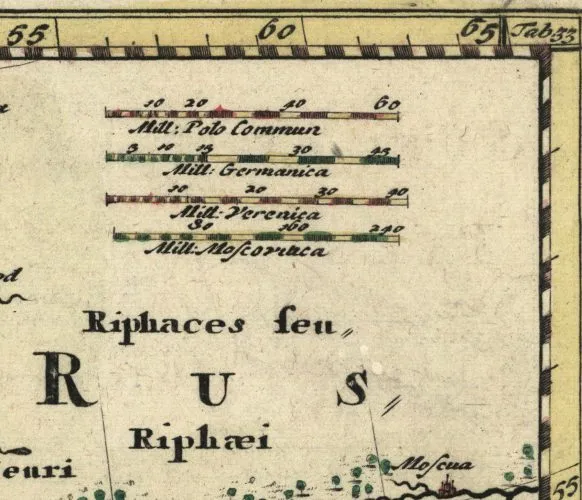 55 60 65 Tab 33
10 20 40 60
Mill: Polo Commun
5 10 15 30 45
Mill: Germanica
10 20 30 40
Mill: Verenica
80 160 240
Mill: Moſcovitica
Riphaces ſeu
R U S
Riphæi
euri
Moſcua
55